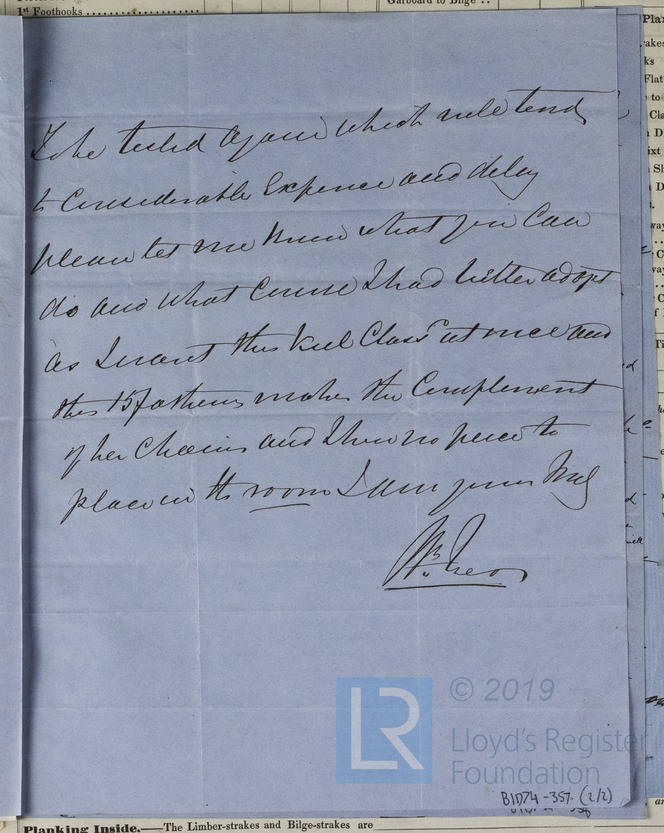 1st Foothooks
Garboard to Bilge
Plan
to be tested again which will tend
to Considerable Expence and delay
please let me know what you Can
do and what Course I had better adopt
as I want this Vessel Class'd at once and
this 15 fathoms makes the Complement
of her Chains and I have no piece to
place in its room I am yours truly
Wm
© 2019
LR
Lloyd's Register
Foundation
B1D74-357. (2/2)
Planking Inside.—The Limber-strakes and Bilge-strakes are